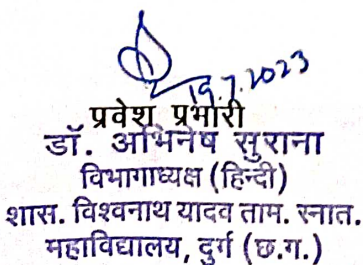 19.7.2023
प्रवेश प्रभारी
डॉ. अभिनेष सुराना
विभागाध्यक्ष (हिन्दी)
शास. विश्वनाथ यादव ताम. स्नात.
महाविद्यालय, दुर्ग (छ.ग.)